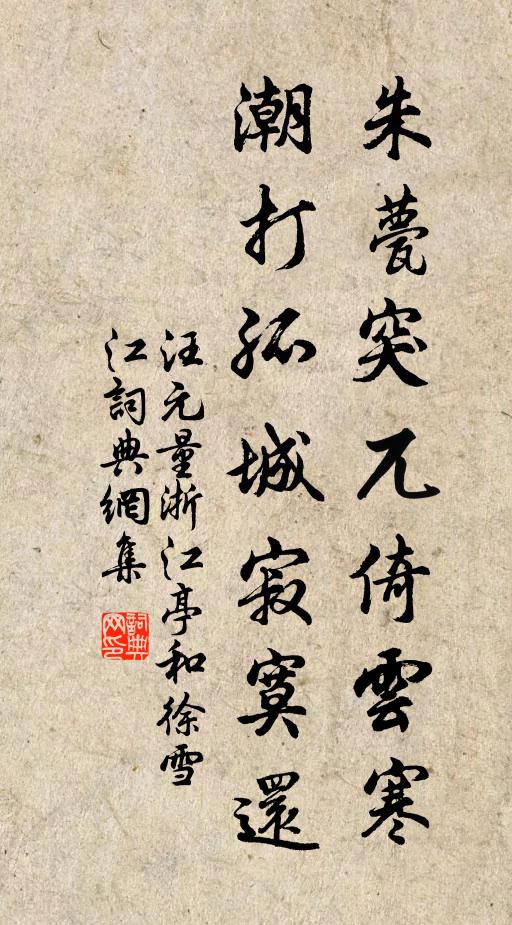 朱甍突兀倚雲寒
潮打孤城寂寞還
汪元量浙江亭和徐雪
江詞典網集
詞典
网印